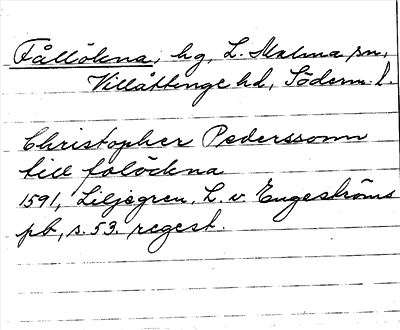 Fållökna, hg, L. Malma sn,
Villåttinge hd, Söderm. l.
Christopher Pederssonn
till folöckna
1591, Liljegren, L. v. Engeströms
pb, s. 53. regest.